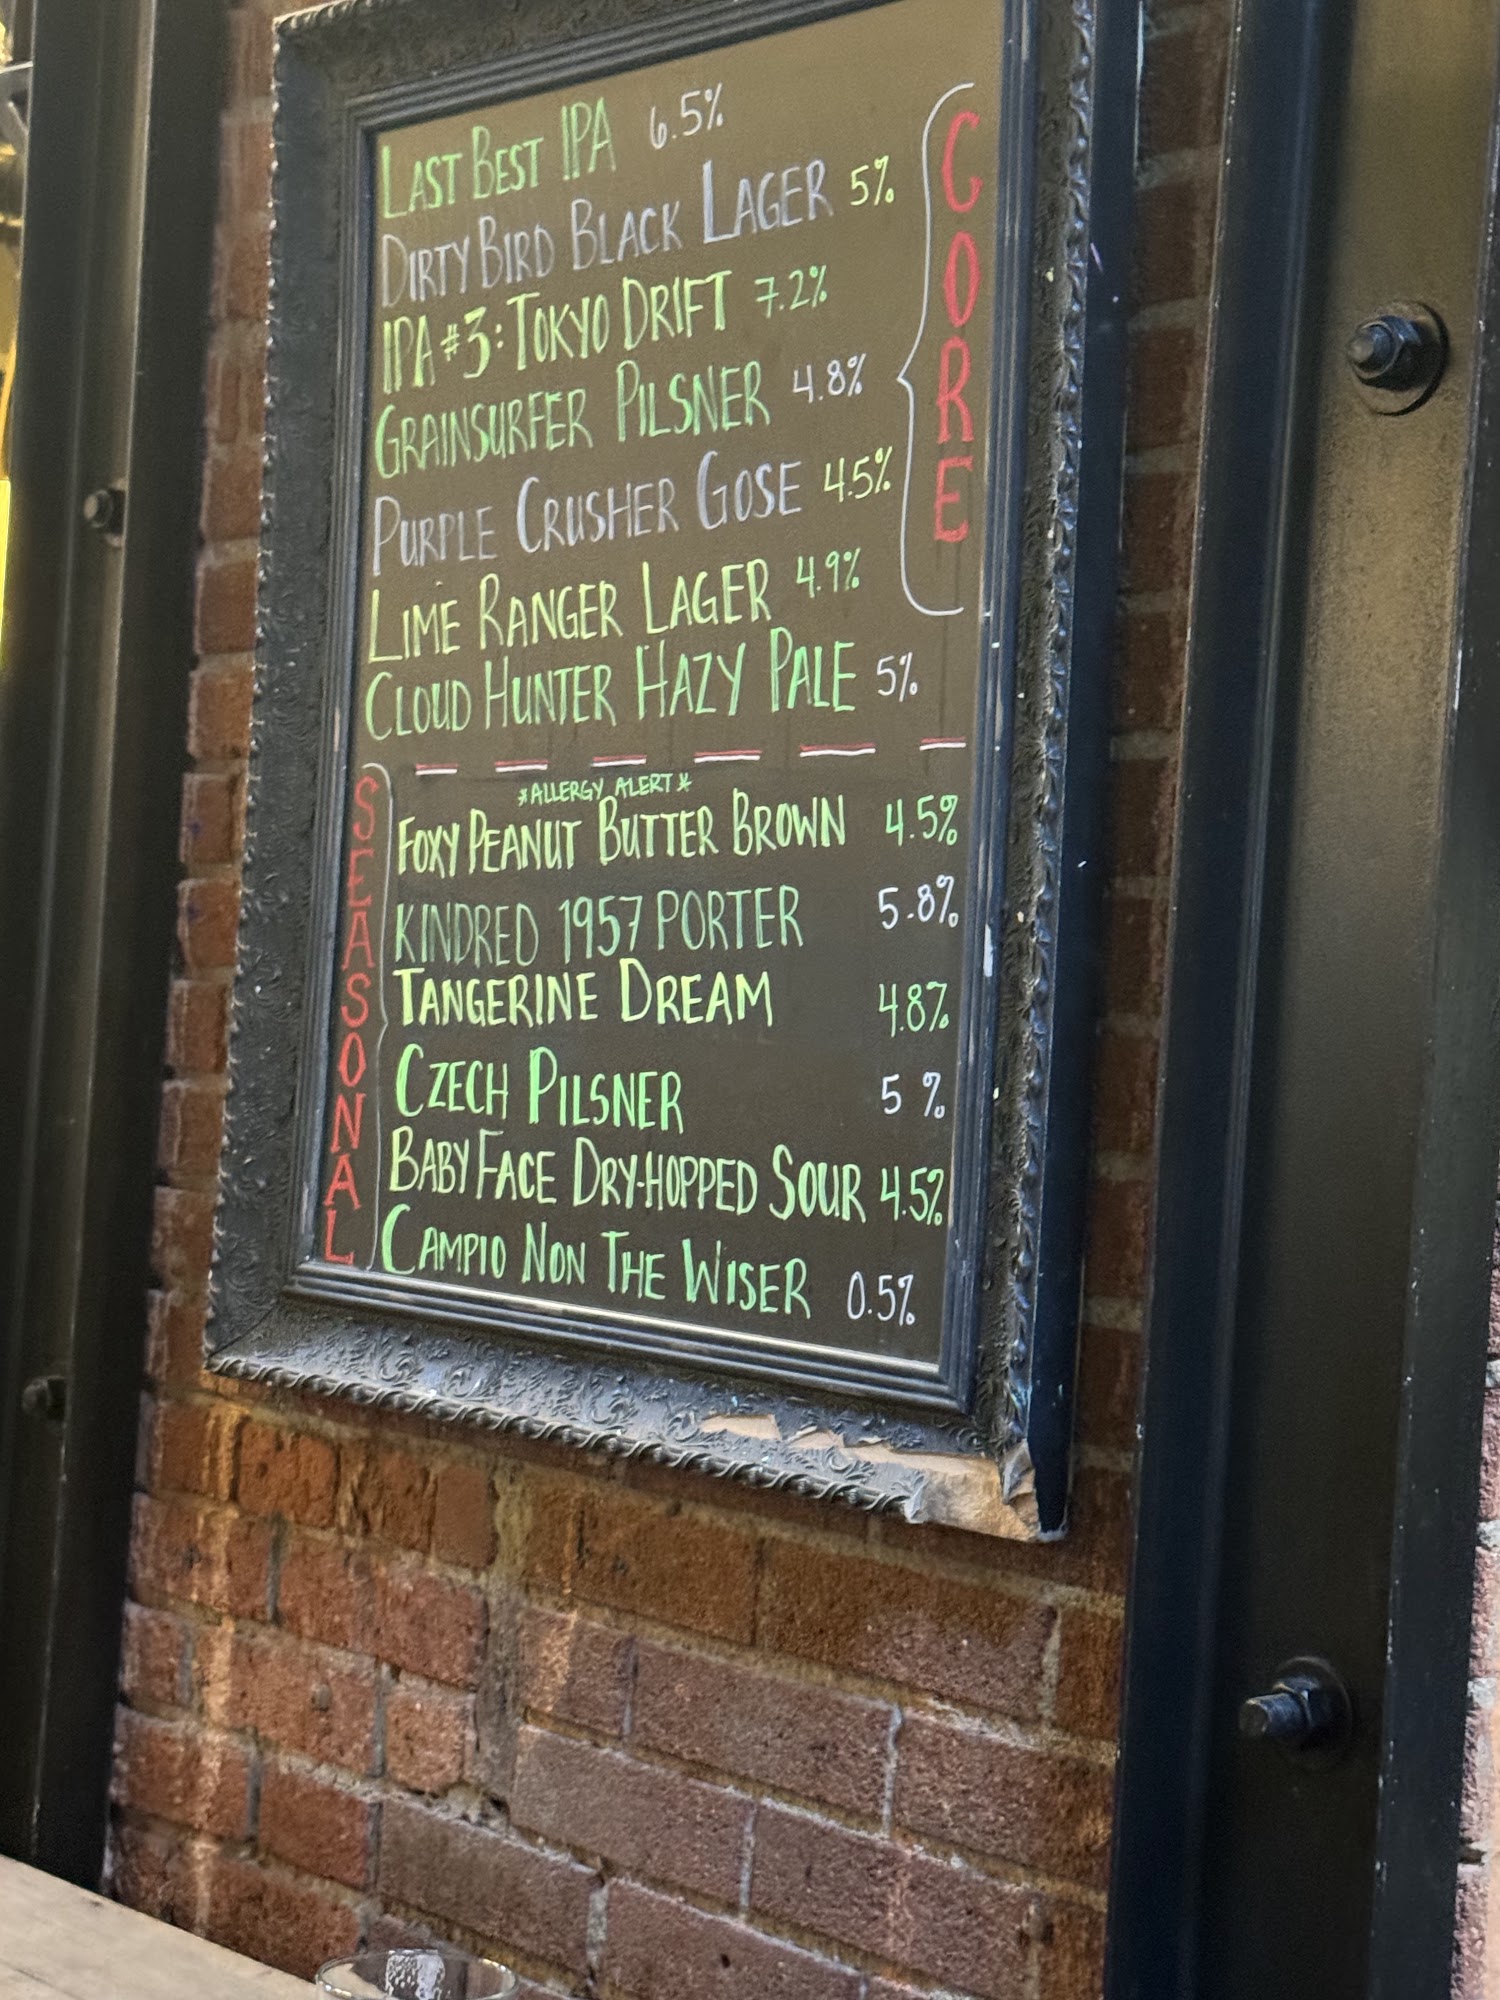 LAST BEST IPA 6.5%
DIRTY BIRD BLACK LAGER 5%
IPA #3: TOKYO DRIFT 7.2%
GRAINSURFER PILSNER 4.8%
PURPLE CRUSHER GOSE 4.5%
LIME RANGER LAGER 4.9%
CLOUD HUNTER HAZY PALE 5%
CORE
*ALLERGY ALERT*
FOXY PEANUT BUTTER BROWN 4.5%
KINDRED 1957 PORTER 5.8%
TANGERINE DREAM 4.8%
CZECH PILSNER 5%
BABY FACE DRY-HOPPED SOUR 4.5%
CAMPIO NON THE WISER 0.5%
SEASONAL